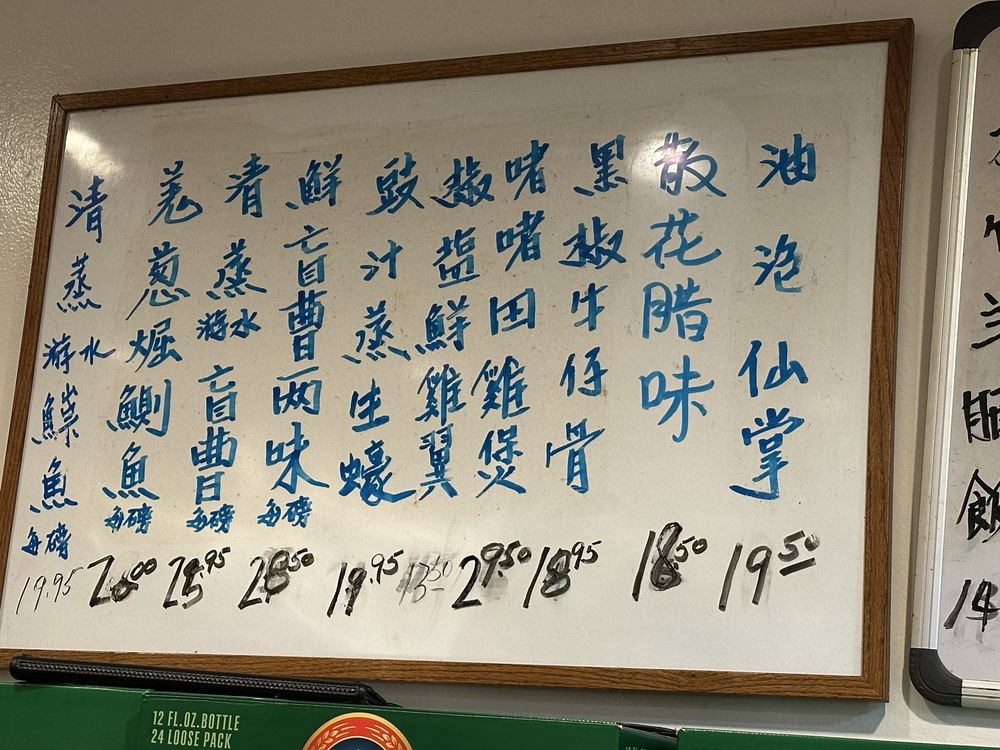 油泡仙掌 19.50
散花腊味 18.50
黑椒牛仔骨 18.95
啫啫田雞煲 29.50
椒盐鮮雞翼 13.50
豉汁蒸生蠔 19.95
鮮盲曹两味 每磅 28.50
清蒸游水盲曹 每磅 25.95
羌葱焗鯏魚 每磅 26.00
清蒸游水鯮魚 每磅 19.95
12 FL.OZ.BOTTLE
24 LOOSE PACK